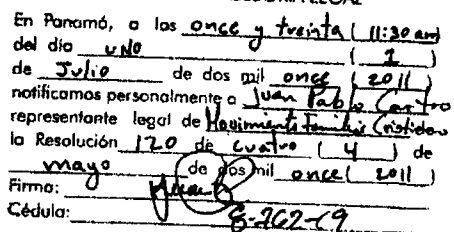 En Panamá, a las once y treinta ( 11:30 am)
del día uno ( 1 )
de Julio de dos mil once ( 2011 )
notificamos personalmente a Juan Pablo Castro
representante legal de Movimiento Familiar Cristiano
la Resolución 120 de cuatro ( 4 ) de
mayo de dos mil once ( 2011 )
Firma:
Cédula: 8-262-69